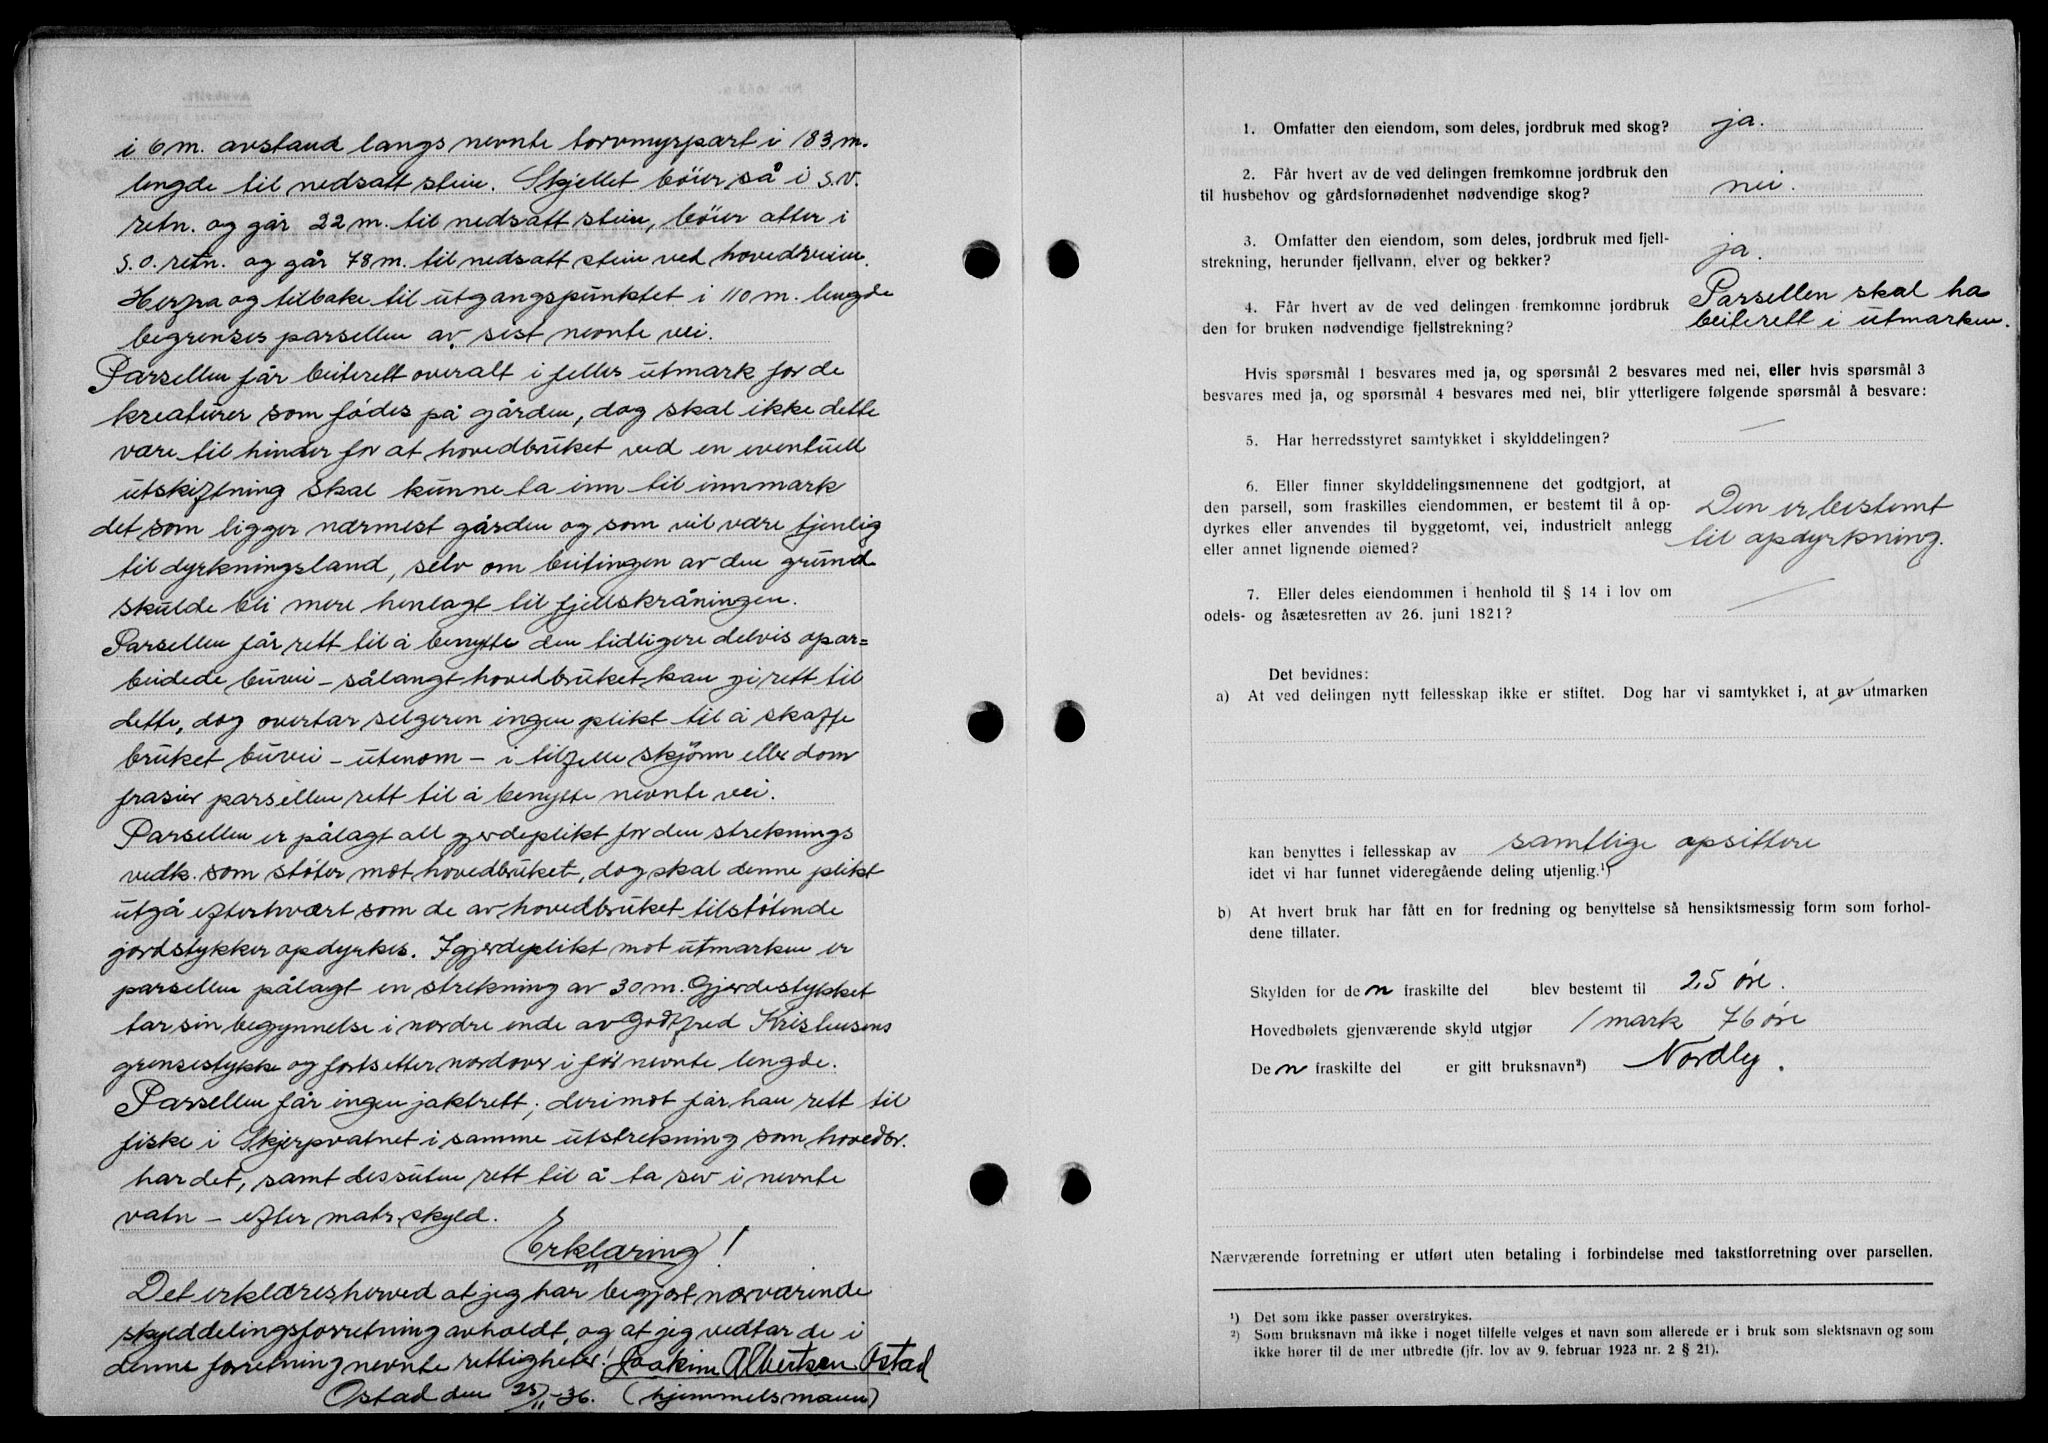 i 6 m. avstand langs nevnte torvmyrpart i 183 m.
lengde til nedsatt stein. Skjellet böier så i s.v.
retn. og går 22 m. til nedsatt stein, böier atter i
s.o. retn. og går 78 m. til nedsatt stein ved hovedveien.
Herfra og tilbake til utgangspunktet i 110 m. lengde
begrenses parsellen av sist nevnte vei.
Parsellen får beiterett overalt i felles utmark for de
kreaturer som fødes på gården, dog skal ikke dette
være til hinder for at hovedbruket ved en eventuell
utskiftning skal kunne ta inn til innmark
det som ligger nærmest gården og som vil være tjenlig
til dyrkningsland, selv om beitingen av den grund
skulde bli mere henlagt til fjellskråningen.
Parsellen får rett til å benytte den tidligere delvis opar=
beidede buvei - sålangt hovedbruket kan gi rett til
dette, dog overtar selgeren ingen plikt til å skaffe
bruket buvei - utenom - i tilfelle skjönn eller dom
frasier parsellen rett til å benytte nevnte vei.
Parsellen er pålagt all gjerdeplikt for den streknings
vedk. som støter mot hovedbruket, dog skal denne plikt
utgå efterhvært som de av hovedbruket tilstøtende
jordstykker opdyrkes. I gjerdeplikt mot utmarken er
parsellen pålagt en strekning av 30 m. Gjerdestykket
tar sin begynnelse i nordre ende av Godtfred Kristensens
grensestykke og fortsetter nordover i før nevnte lengde.
Parsellen får ingen jaktrett; derimot får han rett til
fiske i Skjerpvatnet i samme utstrekning som hovedbr.
har det, samt dessuten rett til å ta sev i nevnte
vatn - efter matr. skyld.
Erklæring!
Det erklæres herved at jeg har begjært nærværende
skylddelingsforretning avholdt, og at jeg vedtar de i
denne forretning nevnte rettigheter! Joakim Albertsen Ostad
Ostad den 25/11-36. (hjemmelsmann)
1. Omfatter den eiendom, som deles, jordbruk med skog? ja.
2. Får hvert av de ved delingen fremkomne jordbruk den
til husbehov og gårdsfornødenhet nødvendige skog? nei.
3. Omfatter den eiendom, som deles, jordbruk med fjell-
strekning, herunder fjellvann, elver og bekker? ja.
4. Får hvert av de ved delingen fremkomne jordbruk Parsellen skal ha
den for bruken nødvendige fjellstrekning? beiterett i utmarken.
Hvis spørsmål 1 besvares med ja, og spørsmål 2 besvares med nei, eller hvis spørsmål 3
besvares med ja, og spørsmål 4 besvares med nei, blir ytterligere følgende spørsmål å besvare:
5. Har herredsstyret samtykket i skylddelingen? —
6. Eller finner skylddelingsmennene det godtgjort, at
den parsell, som fraskilles eiendommen, er bestemt til å op- Den er bestemt
dyrkes eller anvendes til byggetomt, vei, industrielt anlegg til opdyrkning.
eller annet lignende øiemed?
7. Eller deles eiendommen i henhold til § 14 i lov om
odels- og åsætesretten av 26. juni 1821? —
Det bevidnes:
a) At ved delingen nytt fellesskap ikke er stiftet. Dog har vi samtykket i, at av utmarken
kan benyttes i fellesskap av samtlige opsittere
idet vi har funnet videregående deling utjenlig.¹)
b) At hvert bruk har fått en for fredning og benyttelse så hensiktsmessig form som forhol-
dene tillater.
Skylden for den fraskilte del blev bestemt til 25 øre.
Hovedbølets gjenværende skyld utgjør 1 mark 76 øre
Den fraskilte del er gitt bruksnavn²) Nordly.
Nærværende forretning er utført uten betaling i forbindelse med takstforretning over parsellen.
¹) Det som ikke passer overstrykes.
²) Som bruksnavn må ikke i noget tilfelle velges et navn som allerede er i bruk som slektsnavn og som
ikke hører til de mer utbredte (jfr. lov av 9. februar 1923 nr. 2 § 21).